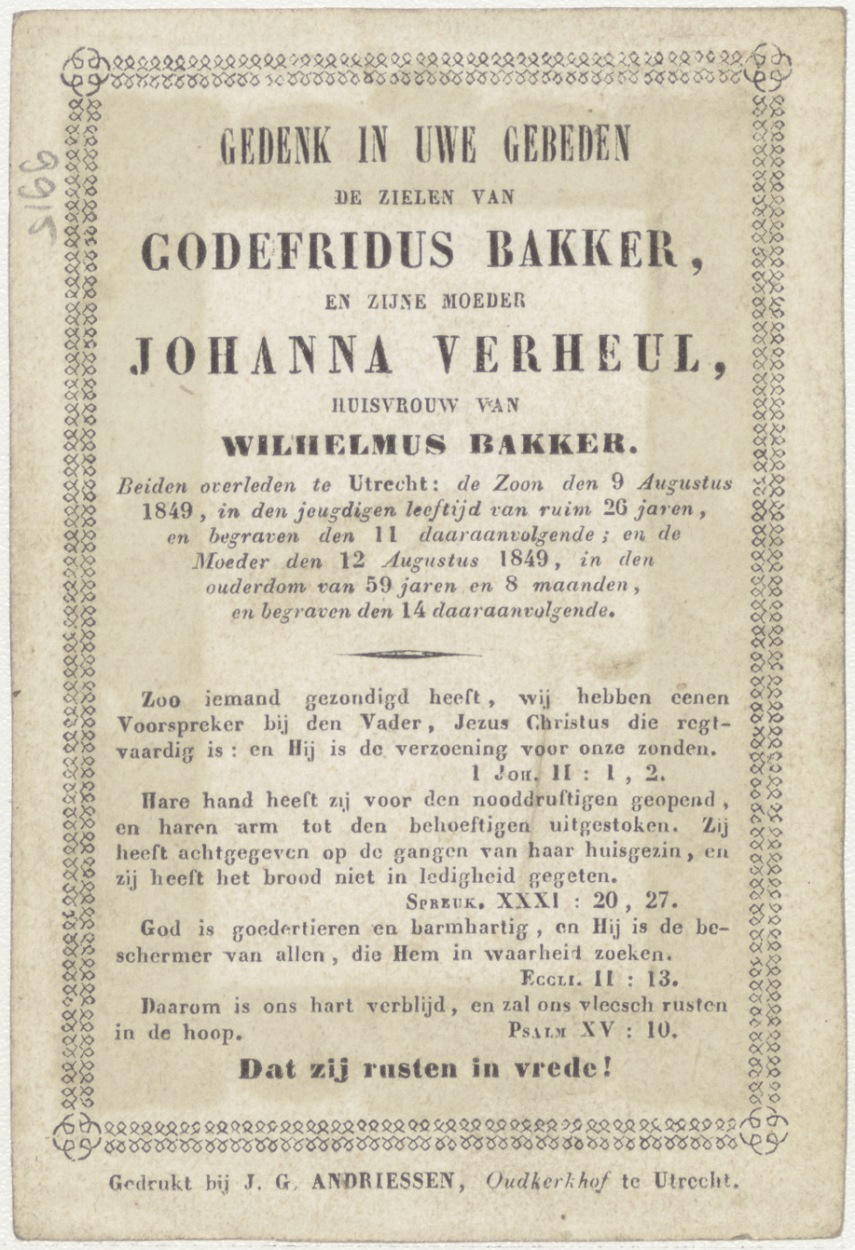 GEDENK IN UWE GEBEDEN
DE ZIELEN VAN
GODEFRIDUS BAKKER,
EN ZIJNE MOEDER
JOHANNA VERHEUL,
HUISVROUW VAN
WILHELMUS BAKKER.
Beiden overleden te Utrecht: de Zoon den 9 Augustus
1849, in den jeugdigen leeftijd van ruim 26 jaren,
en begraven den 11 daaraanvolgende; en de
Moeder den 12 Augustus 1849, in den
ouderdom van 59 jaren en 8 maanden,
en begraven den 14 daaraanvolgende.
Zoo iemand gezondigd heeft, wij hebben eenen
Voorspreker bij den Vader, Jezus Christus die regt-
vaardig is: en Hij is de verzoening voor onze zonden.
1 JOH. II : 1, 2.
Hare hand heeft zij voor den nooddruftigen geopend,
en haren arm tot den behoeftigen uitgestoken. Zij
heeft achtgegeven op de gangen van haar huisgezin, en
zij heeft het brood niet in ledigheid gegeten.
SPREUK. XXXI : 20, 27.
God is goedertieren en barmhartig, en Hij is de be-
schermer van allen, die Hem in waarheid zoeken.
ECCLI. II : 13.
Daarom is ons hart verblijd, en zal ons vleesch rusten
in de hoop. PSALM XV : 10.
Dat zij rusten in vrede!
Gedrukt bij J. G. ANDRIESSEN, Oudkerkhof te Utrecht.